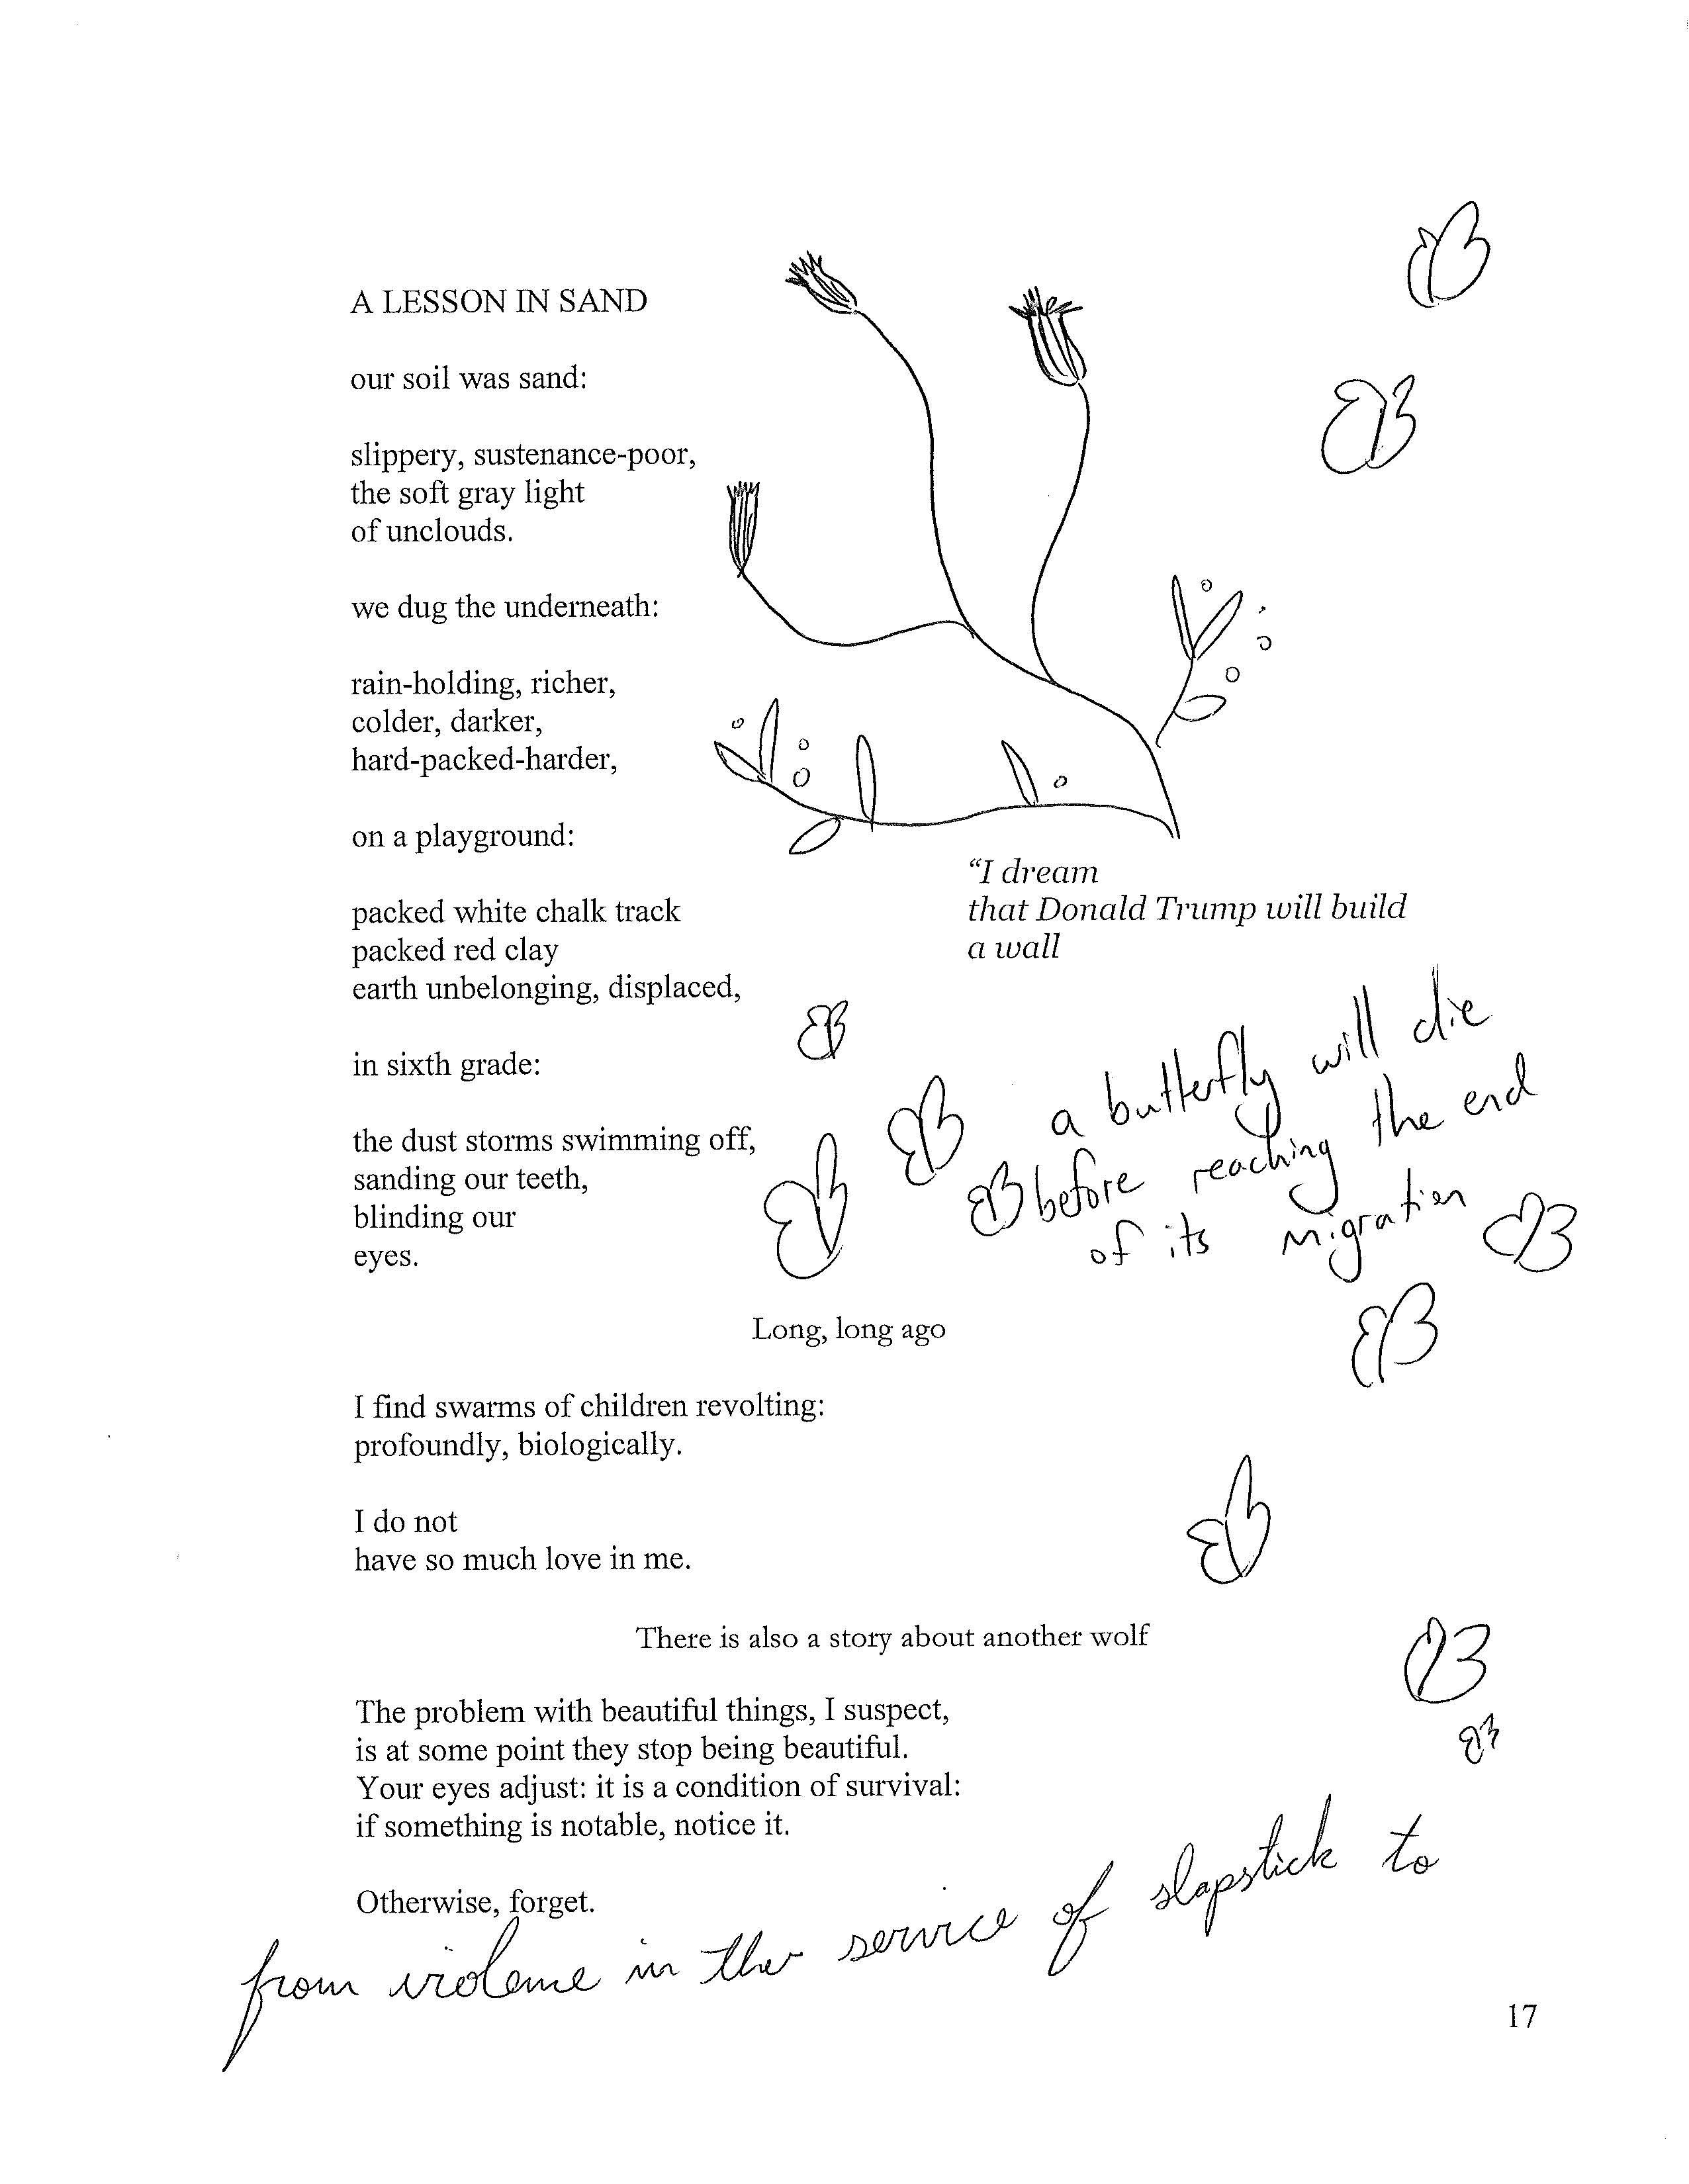 A LESSON IN SAND
our soil was sand:
slippery, sustenance-poor,
the soft gray light
of unclouds.
we dug the underneath:
rain-holding, richer,
colder, darker,
hard-packed-harder,
on a playground:
packed white chalk track
packed red clay
earth unbelonging, displaced,
in sixth grade:
the dust storms swimming off,
sanding our teeth,
blinding our
eyes.
“I dream
that Donald Trump will build
a wall
a butterfly will die
before reaching the end
of its migration
Long, long ago
I find swarms of children revolting:
profoundly, biologically.
I do not
have so much love in me.
There is also a story about another wolf
The problem with beautiful things, I suspect,
is at some point they stop being beautiful.
Your eyes adjust: it is a condition of survival:
if something is notable, notice it.
Otherwise, forget.
from violence in the service of slapstick to
17